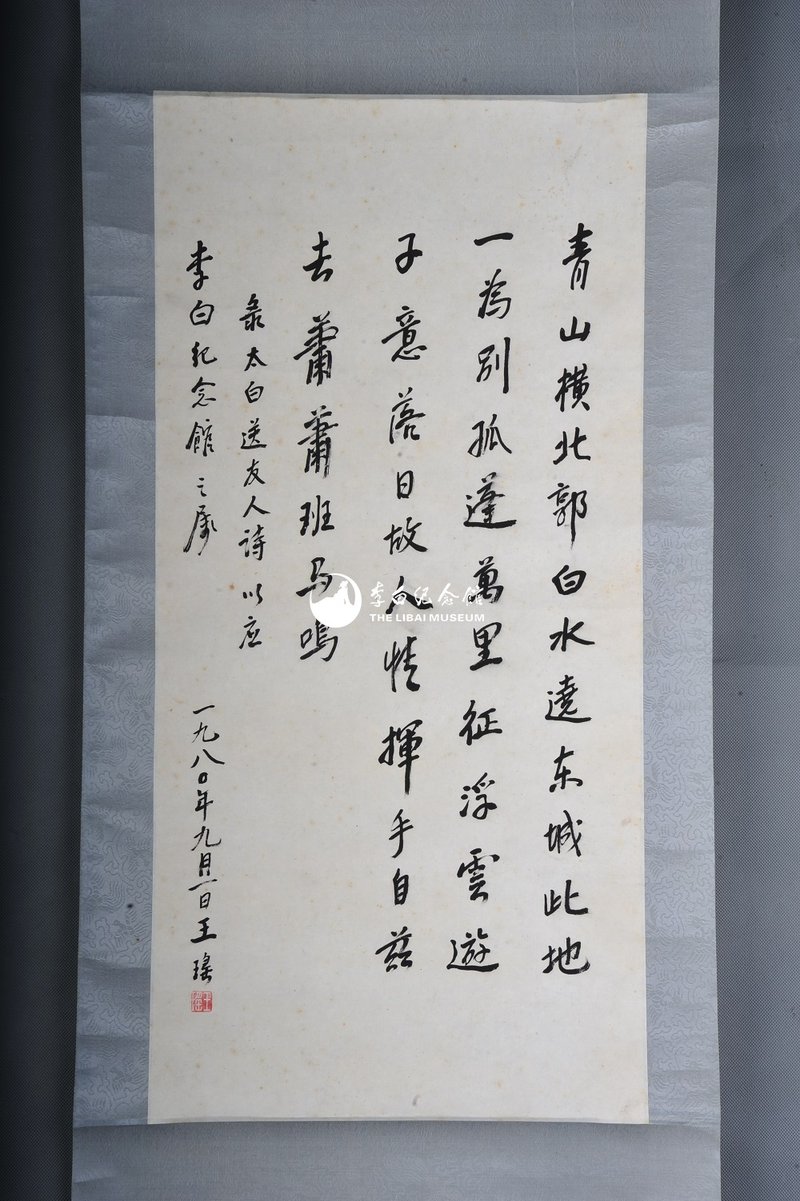 青山橫北郭白水遶东城此地
一為别孤蓬萬里征浮雲遊
子意落日故人情揮手自茲
去蕭蕭班马鳴
录太白送友人诗以应
李白纪念館之属
一九八〇年九月一日王瑤
李白纪念馆
THE LIBAI MUSEUM